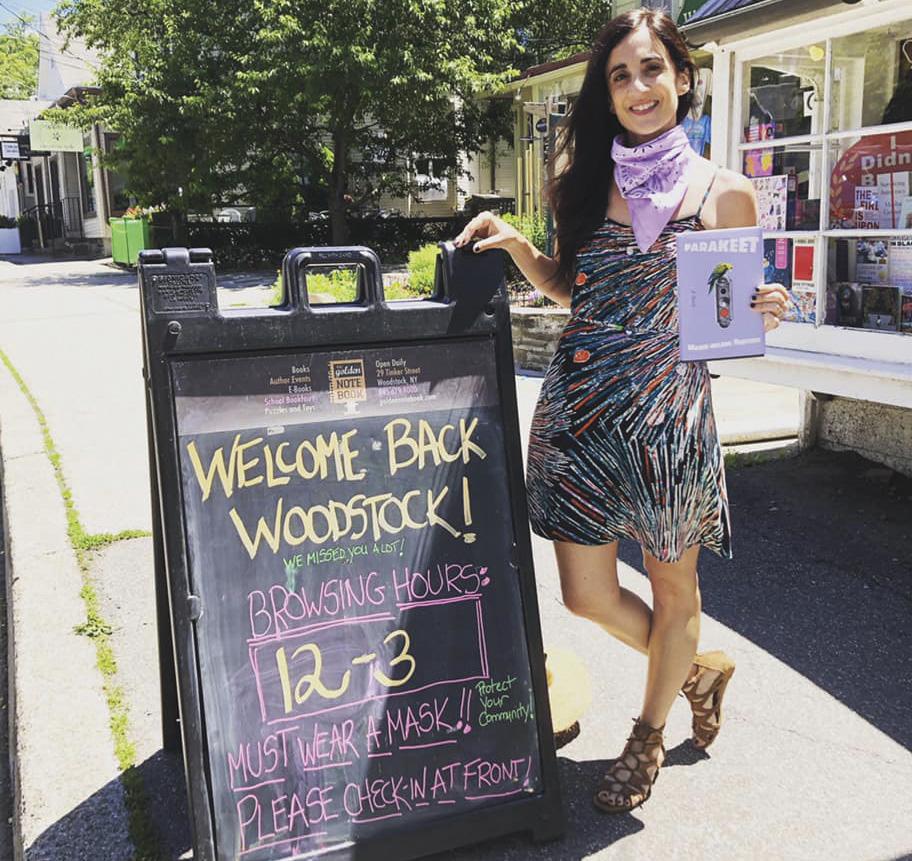 Books
Author Events
E-Books
School Bookfairs
Puzzles and Toys
golden
NOTE
BOOK
Open Daily
29 Tinker Street
Woodstock, NY
goldennotebook.com
WELCOME BACK
WOODSTOCK!
WE MISSED YOU A LOT!
BROWSING HOURS:
12-3
MUST WEAR A MASK!!
Protect
Your
Community!
PLEASE CHECK-IN AT FRONT!
PARAKEET
I
Didn
THE
FIRE IS
UPON